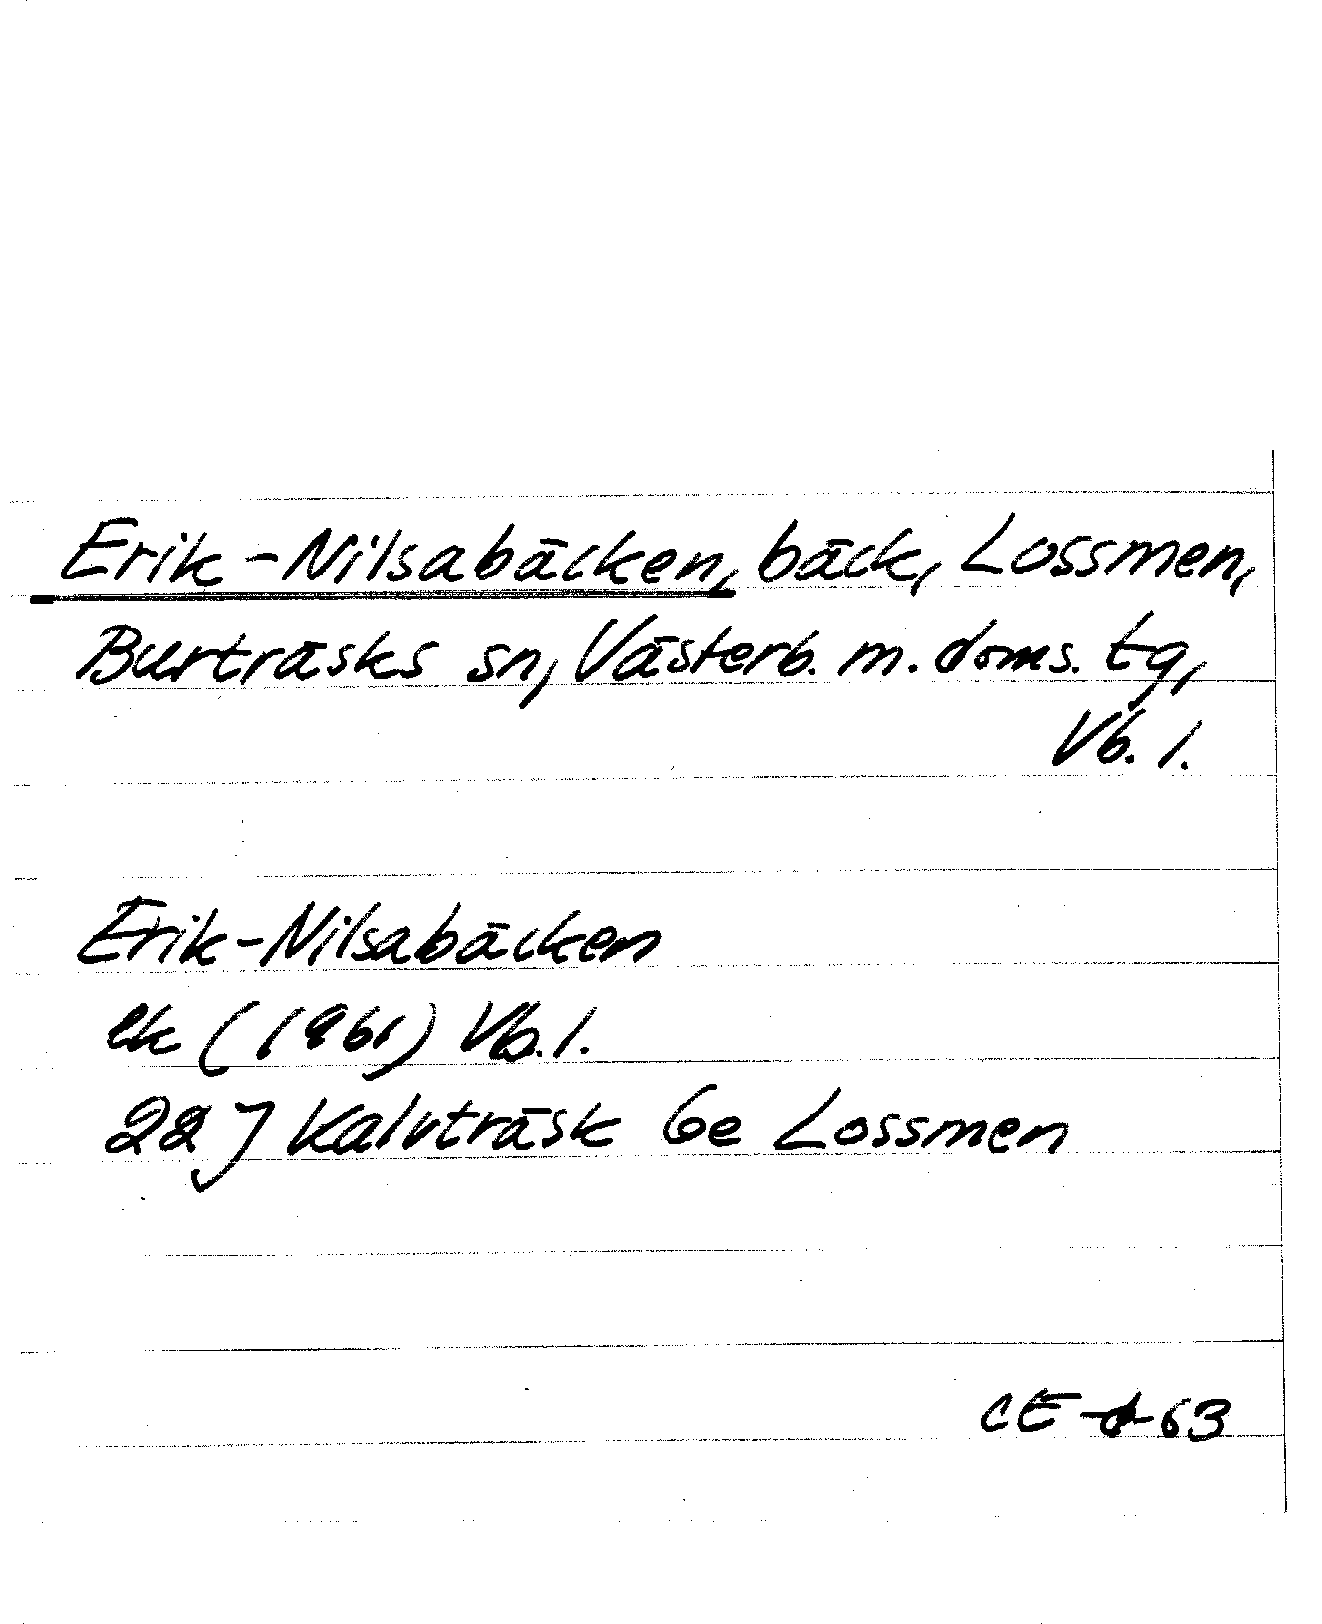 Erik-Nilsabäcken, bäck, Lossmen,
Burträsks sn, Västerb. m. doms. tg,
Vb. l.
Erik-Nilsabäcken
ek (1961) Vb. l.
22 J Kalvträsk 6e Lossmen
CE 63